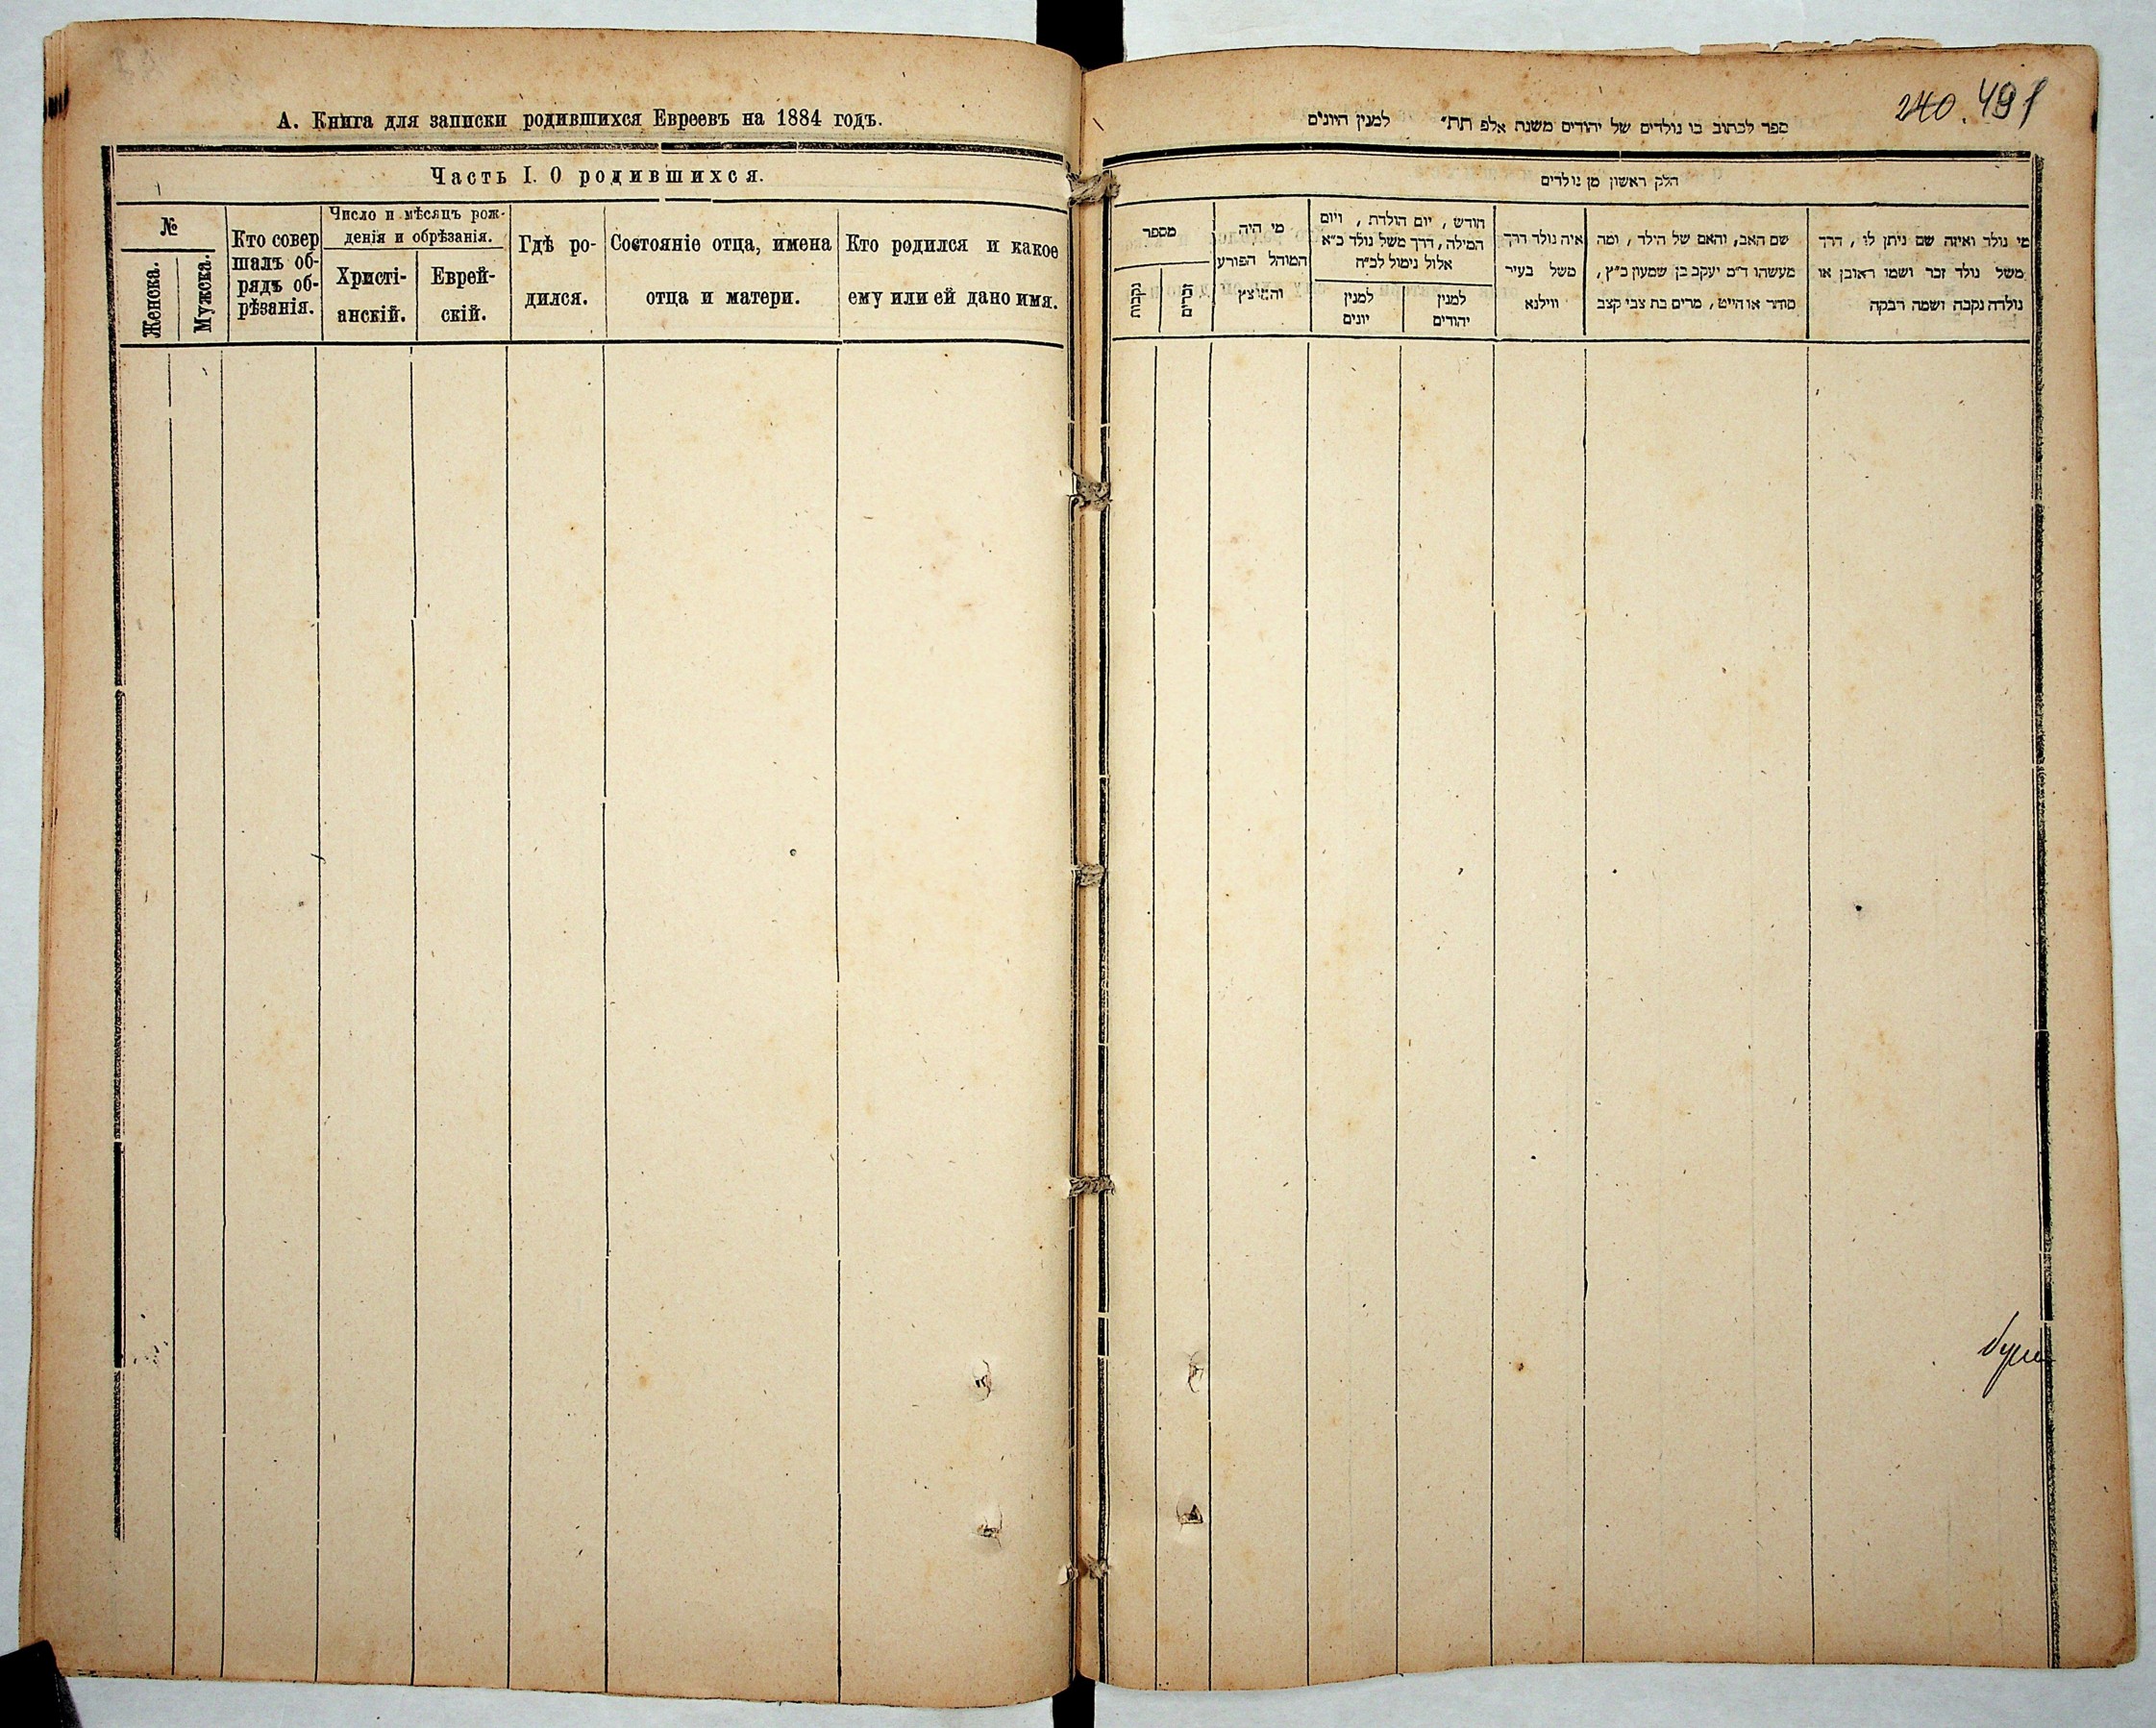 А. Книга для записки родившихся Евреевъ на 1884 годъ.
Часть I. О родившихся.
№
Женска.
Мужска.
Кто совер
шалъ об-
рядъ об-
рѣзанія.
Число и мѣсяцъ рож-
денія и обрѣзанія.
Христі-
анскій.
Еврей-
скій.
Гдѣ ро-
дился.
Состояніе отца, имена
отца и матери.
Кто родился и какое
ему или ей дано имя.
240. 491
ספר לכתוב בו נולדים של יהודים משנת אלפ תת״ למנין היונים
חלק ראשון מן נולדים
מי נולד ואיזה שם ניתן לו, דרך
משל נולד זכר ושמו ראובן או
נולדה נקבה ושמה רבקה
שם האב, והאם של הילד, ומה
מעשהו ד״מ יעקב בן שמעון כ״ץ,
סוחר או חייט, מרים בת צבי קצב
איה נולד דרך
משל בעיר
ווילנא
חודש, יום הולדת, ויום
המילה, דרך משל נולד כ״א
אלול נימול לכ״ח
למנין
יהודים
למנין
יונים
מי היה
המוהל הפורע
והמוצץ
מספר
זכרים
נקבות